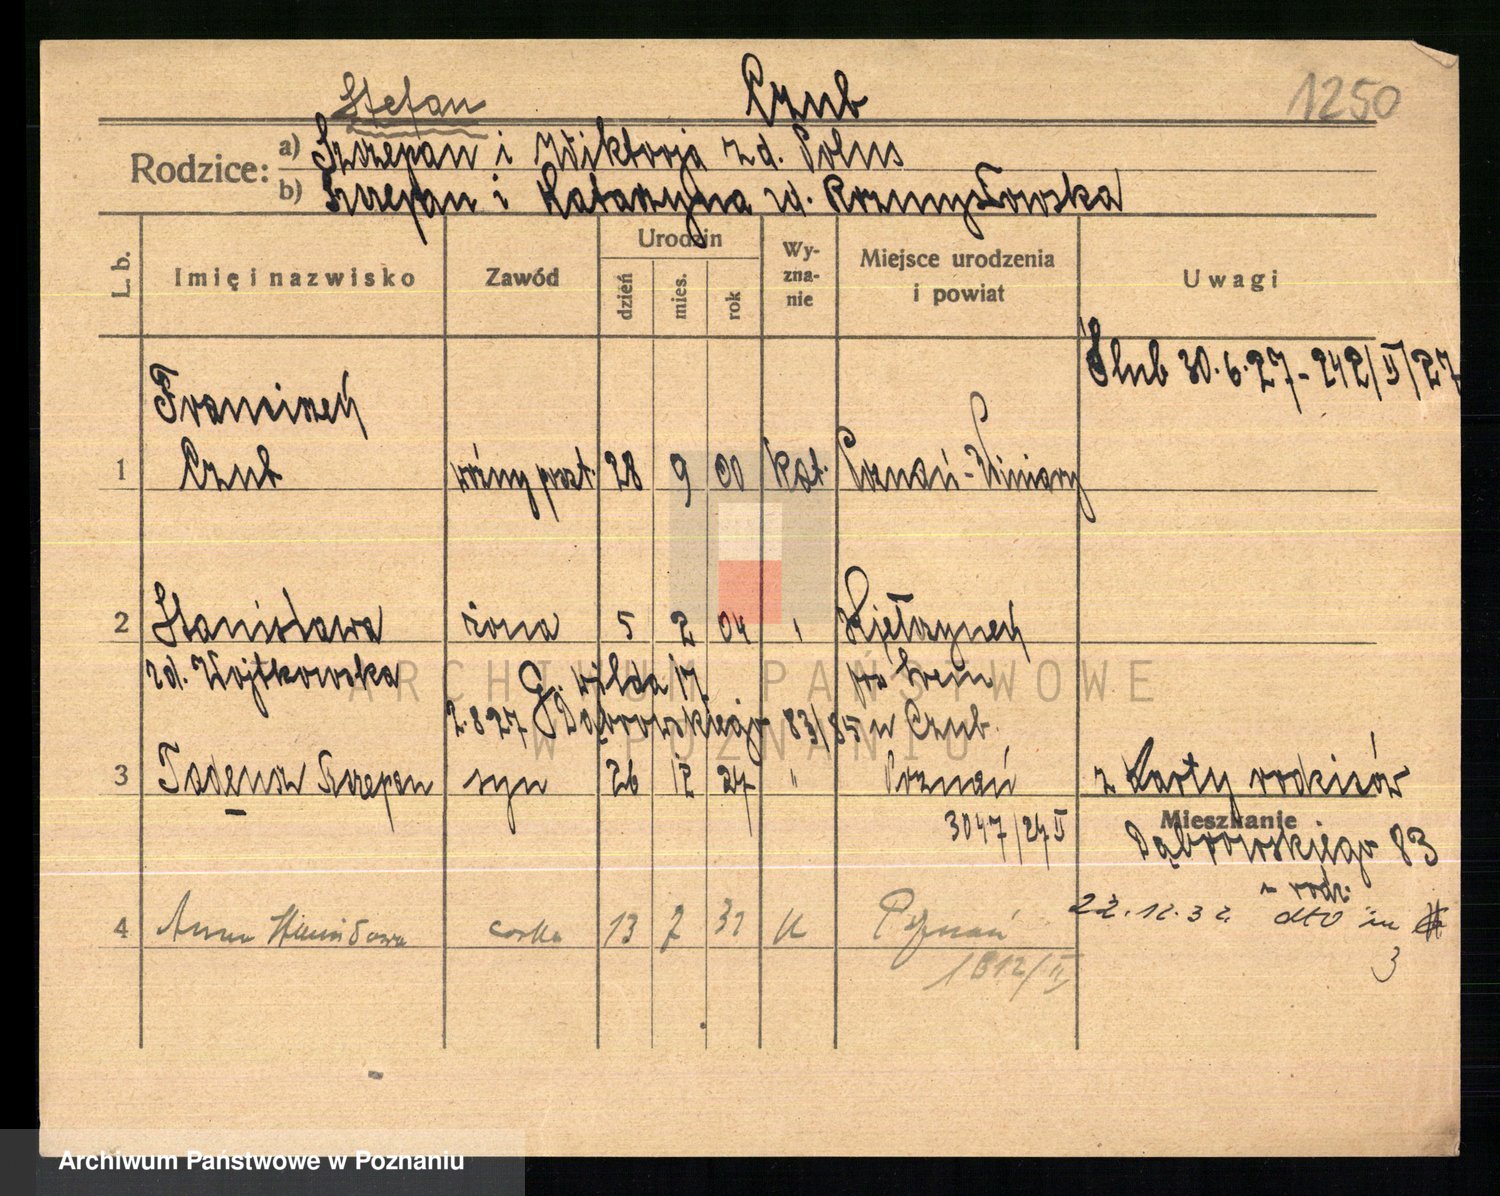 Stefan Czub 1250
Rodzice: a) Szczepan i Wiktorja zd. Polus
b) Szczepan i Katarzyna zd. Przemysłowska
L. b. Imię i nazwisko Zawód Urodzin dzień mies. rok Wyzna-nie Miejsce urodzenia i powiat Uwagi
Ślub 30.6.27 - 242/II/27
Franciszek
1 Czub woźny poczt. 28 9 00 kat. Poznań-Winiary
2 Stanisława żona 5 2 04 Księ
zd. Wojtkowska G. Wilda 17.
2.8 27 Dąbrowskiego 83/85 u Czub.
3 Tadeusz Szczepan syn 26 12 27 " Poznań z karty rodziców
3047/27 II Mieszkanie
Dąbrowskiego 83
u rodz.
4 Anna Stanisława córka 13 7 31 k Poznań 22.12.32. dto m
1812/II 3
ARCHIWUM PAŃSTWOWE
W POZNANIU
Archiwum Państwowe w Poznaniu